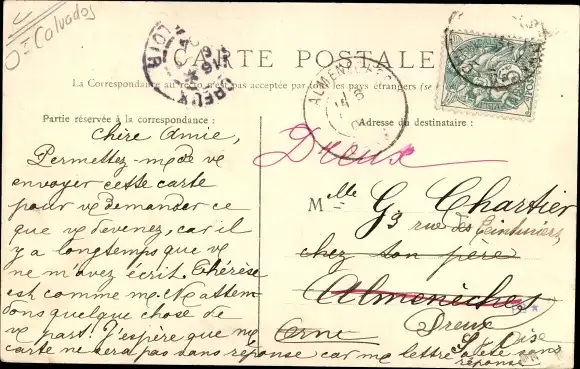 Oᵉ Calvados
CARTE POSTALE
La Correspondance au recto n'est pas acceptée par tous les pays étrangers (se
Partie réservée à la correspondance :
Adresse du destinataire :
DREUX
LOIR
ALMENÊCHES
Chère Amie,
Permettez-moi de vs
envoyer cette carte
pour vs demander ce
que vs devenez, car il
y a longtemps que vs
ne m'avez écrit. Thérèse
est comme moi. Ns atten
dons quelque chose de
vs part. J'espère que ma
carte ne sera pas sans réponse car ma lettre a été sans
réponse
Dreux
Mlle G. Chartier
93 rue des Teinturiers
chez son père
Almenêches
Dreux
Orne
S. et Oise